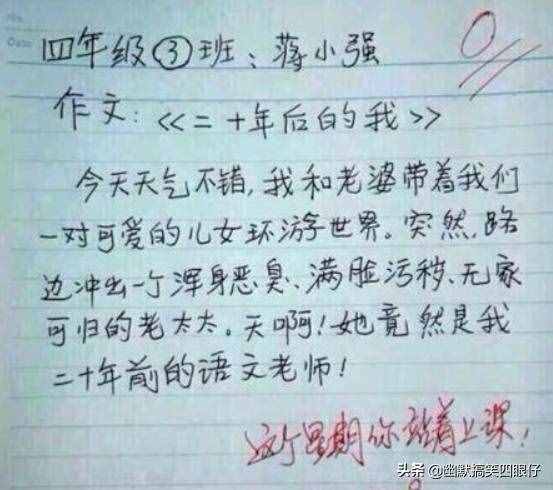 四年级③班：蒋小强
0
作文：<<二十年后的我>>
今天天气不错，我和老婆带着我们
一对可爱的儿女环游世界。突然，路
边冲出一个浑身恶臭、满脸污秽、无家
可归的老太太。天啊！她竟然是我
二十年前的语文老师！
这个星期你站着上课！
头条 @幽默搞笑四眼仔